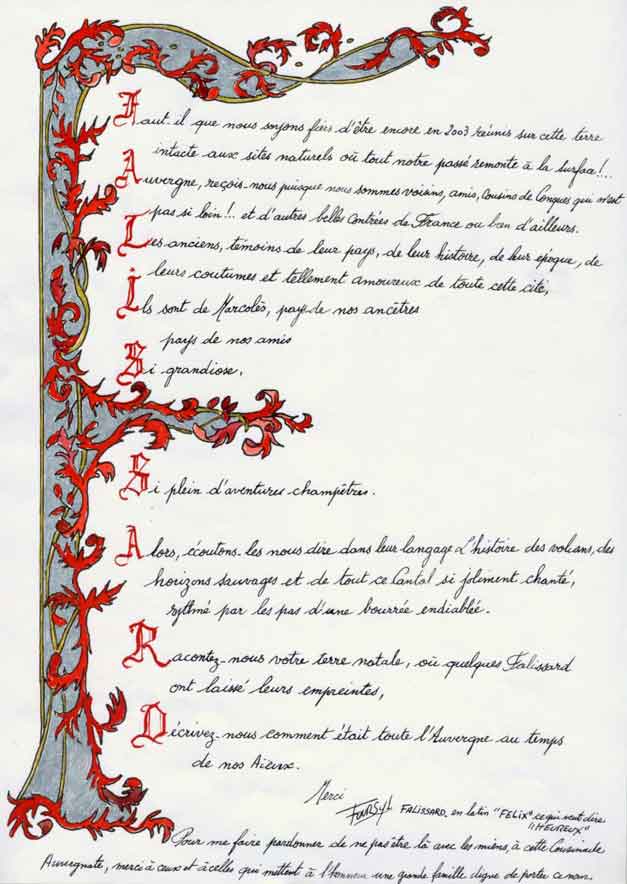 Faut-il que nous soyons fiers d'être encore en 2003 réunis sur cette terre
intacte aux sites naturels où tout notre passé remonte à la surface!..
Auvergne, reçois-nous puisque nous sommes voisins, amis, Cousins de Conques qui n'est
pas si loin!.. et d'autres belles Contrées de France ou bien d'ailleurs.
Les anciens, témoins de leur pays, de leur histoire, de leur époque, de
leurs coutumes et tellement amoureux de toute cette cité,
Ils sont de Marcolès, pays de nos ancêtres
pays de nos amis
Si grandiose,
Si plein d'aventures champêtres.
Alors, écoutons-les nous dire dans leur langage l'histoire des volcans, des
horizons sauvages et de tout ce Cantal si joliment chanté,
rytmé par les pas d'une bourrée endiablée.
Racontez-nous votre terre natale, où quelques Falissard
ont laissé leurs empreintes,
Décrivez-nous comment était toute l'Auvergne au temps
de nos Aïeux.
Merci
FALISSARD, en latin "FELIX" ce qui veut dire
"HEUREUX"
Pour me faire pardonner de ne pas être là avec les miens, à cette Cousinade
Auvergnate, merci à ceux et à celles qui mettent à l'honneur une grande famille digne de porter ce nom.